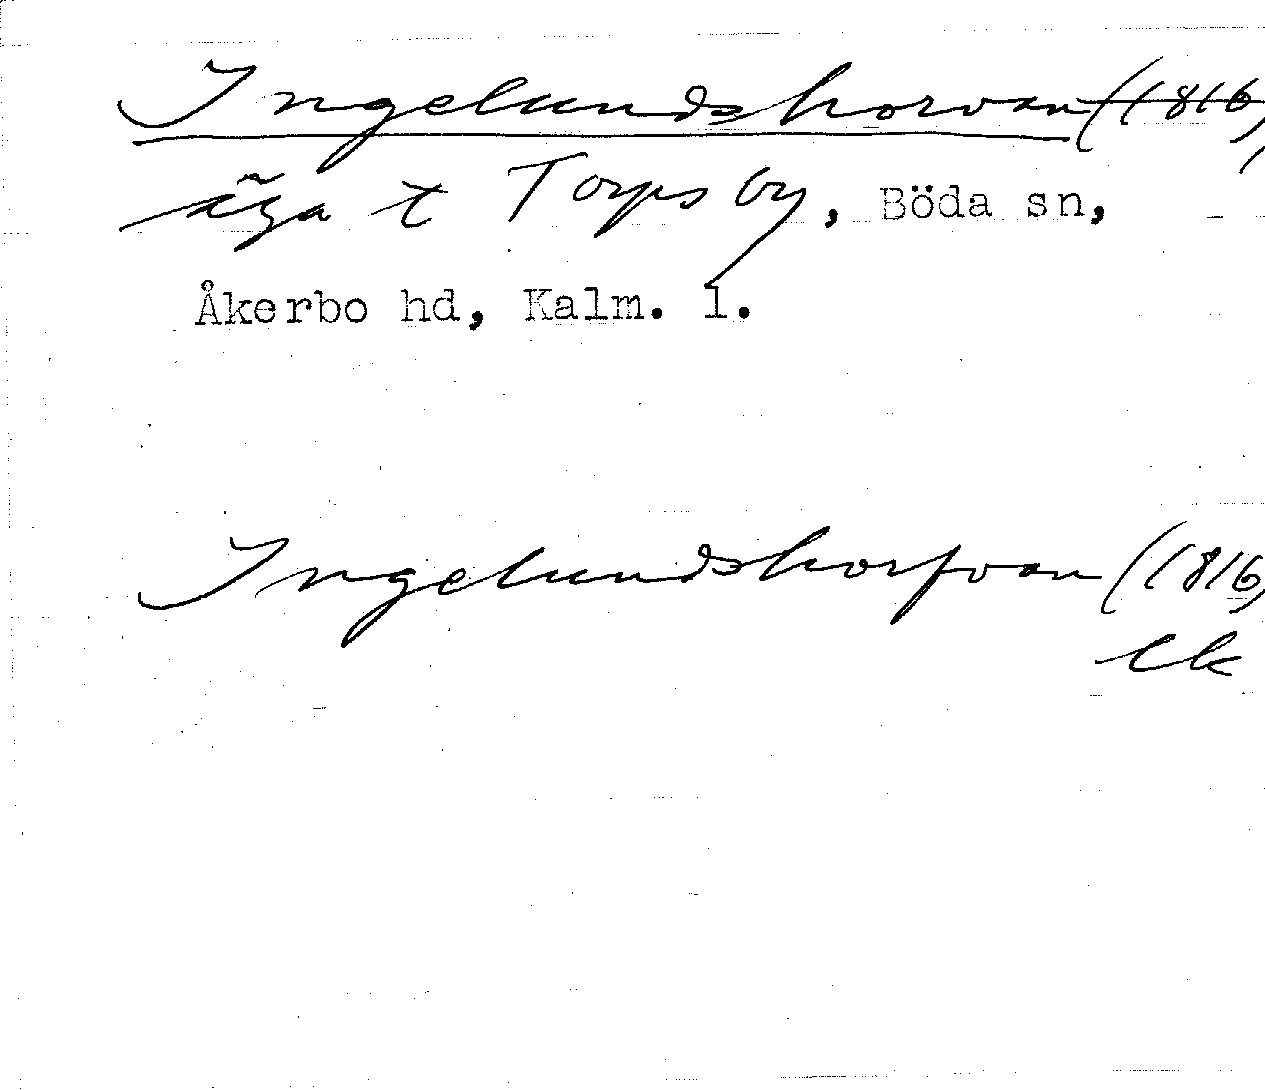 Ingelundshorvan (1816,
äga t Torps by, Böda sn,
Åkerbo hd, Kalm. l.
Ingelundshorfvan (1816,
ek